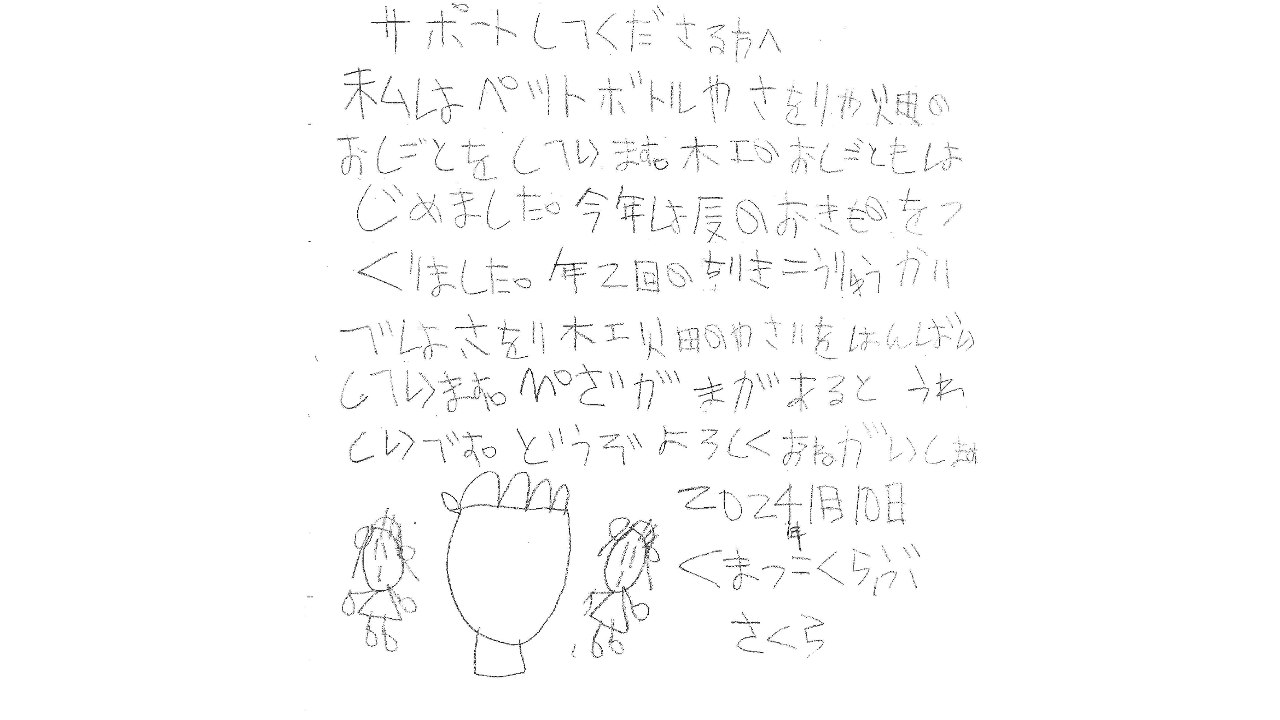 サポートしてくださる方へ
私はペットボトルやさをりや畑の
おしごとをしています。木工のおしごともは
じめました。今年は辰のおきものをつ
くりました。年2回の
でしょさをり木工畑のやさいをはんばい
しています。 があると うれ
しいです。どうぞよろしくおねがいします
2024年1月10日
くまっこくらぶ
さくら